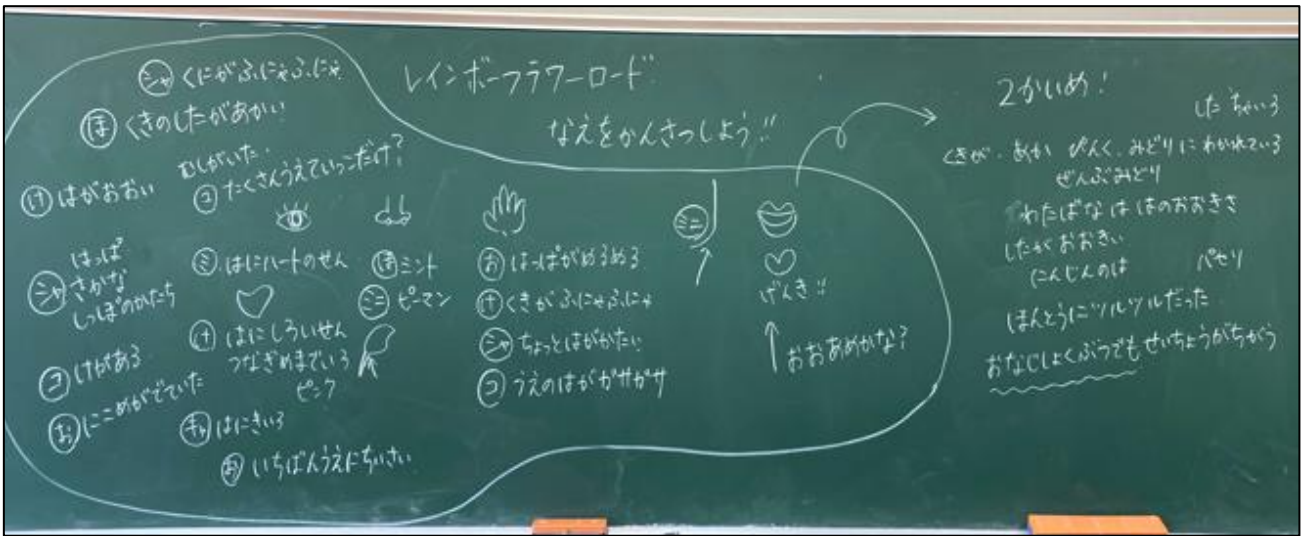 レインボーフラワーロード
なえをかんさつしよう!!
シャ くにがふにゃふにゃ
ほ くきのしたがあかい
むしがいた。
け はがおおい
コ たくさんうえていっこだけ?
シャ はっぱ
さかな
しっぽのかたち
コ けがある
お にこめがでていた
ミ はにハートのせん
け はにしろいせん
つなぎめまでいろ
ピンク
キャ はにきいろ
お いちばんうえにちいさい
ほ ミント
ミニ ピーマン
お はっぱがぬるぬる
け くきがふにゃふにゃ
シャ ちょっとはがかたい
コ うえのはがガサガサ
ミニ
げんき!!
おおあめかな?
2かいめ!
した ちゃいろ
くきが、あか ぴんく、みどりにわかれている
ぜんぶみどり
わたばなははのおおきさ
したがおおきい
にんじんのは パセリ
ほんとうにツルツルだった
おなじしょくぶつでもせいちょうがちがう